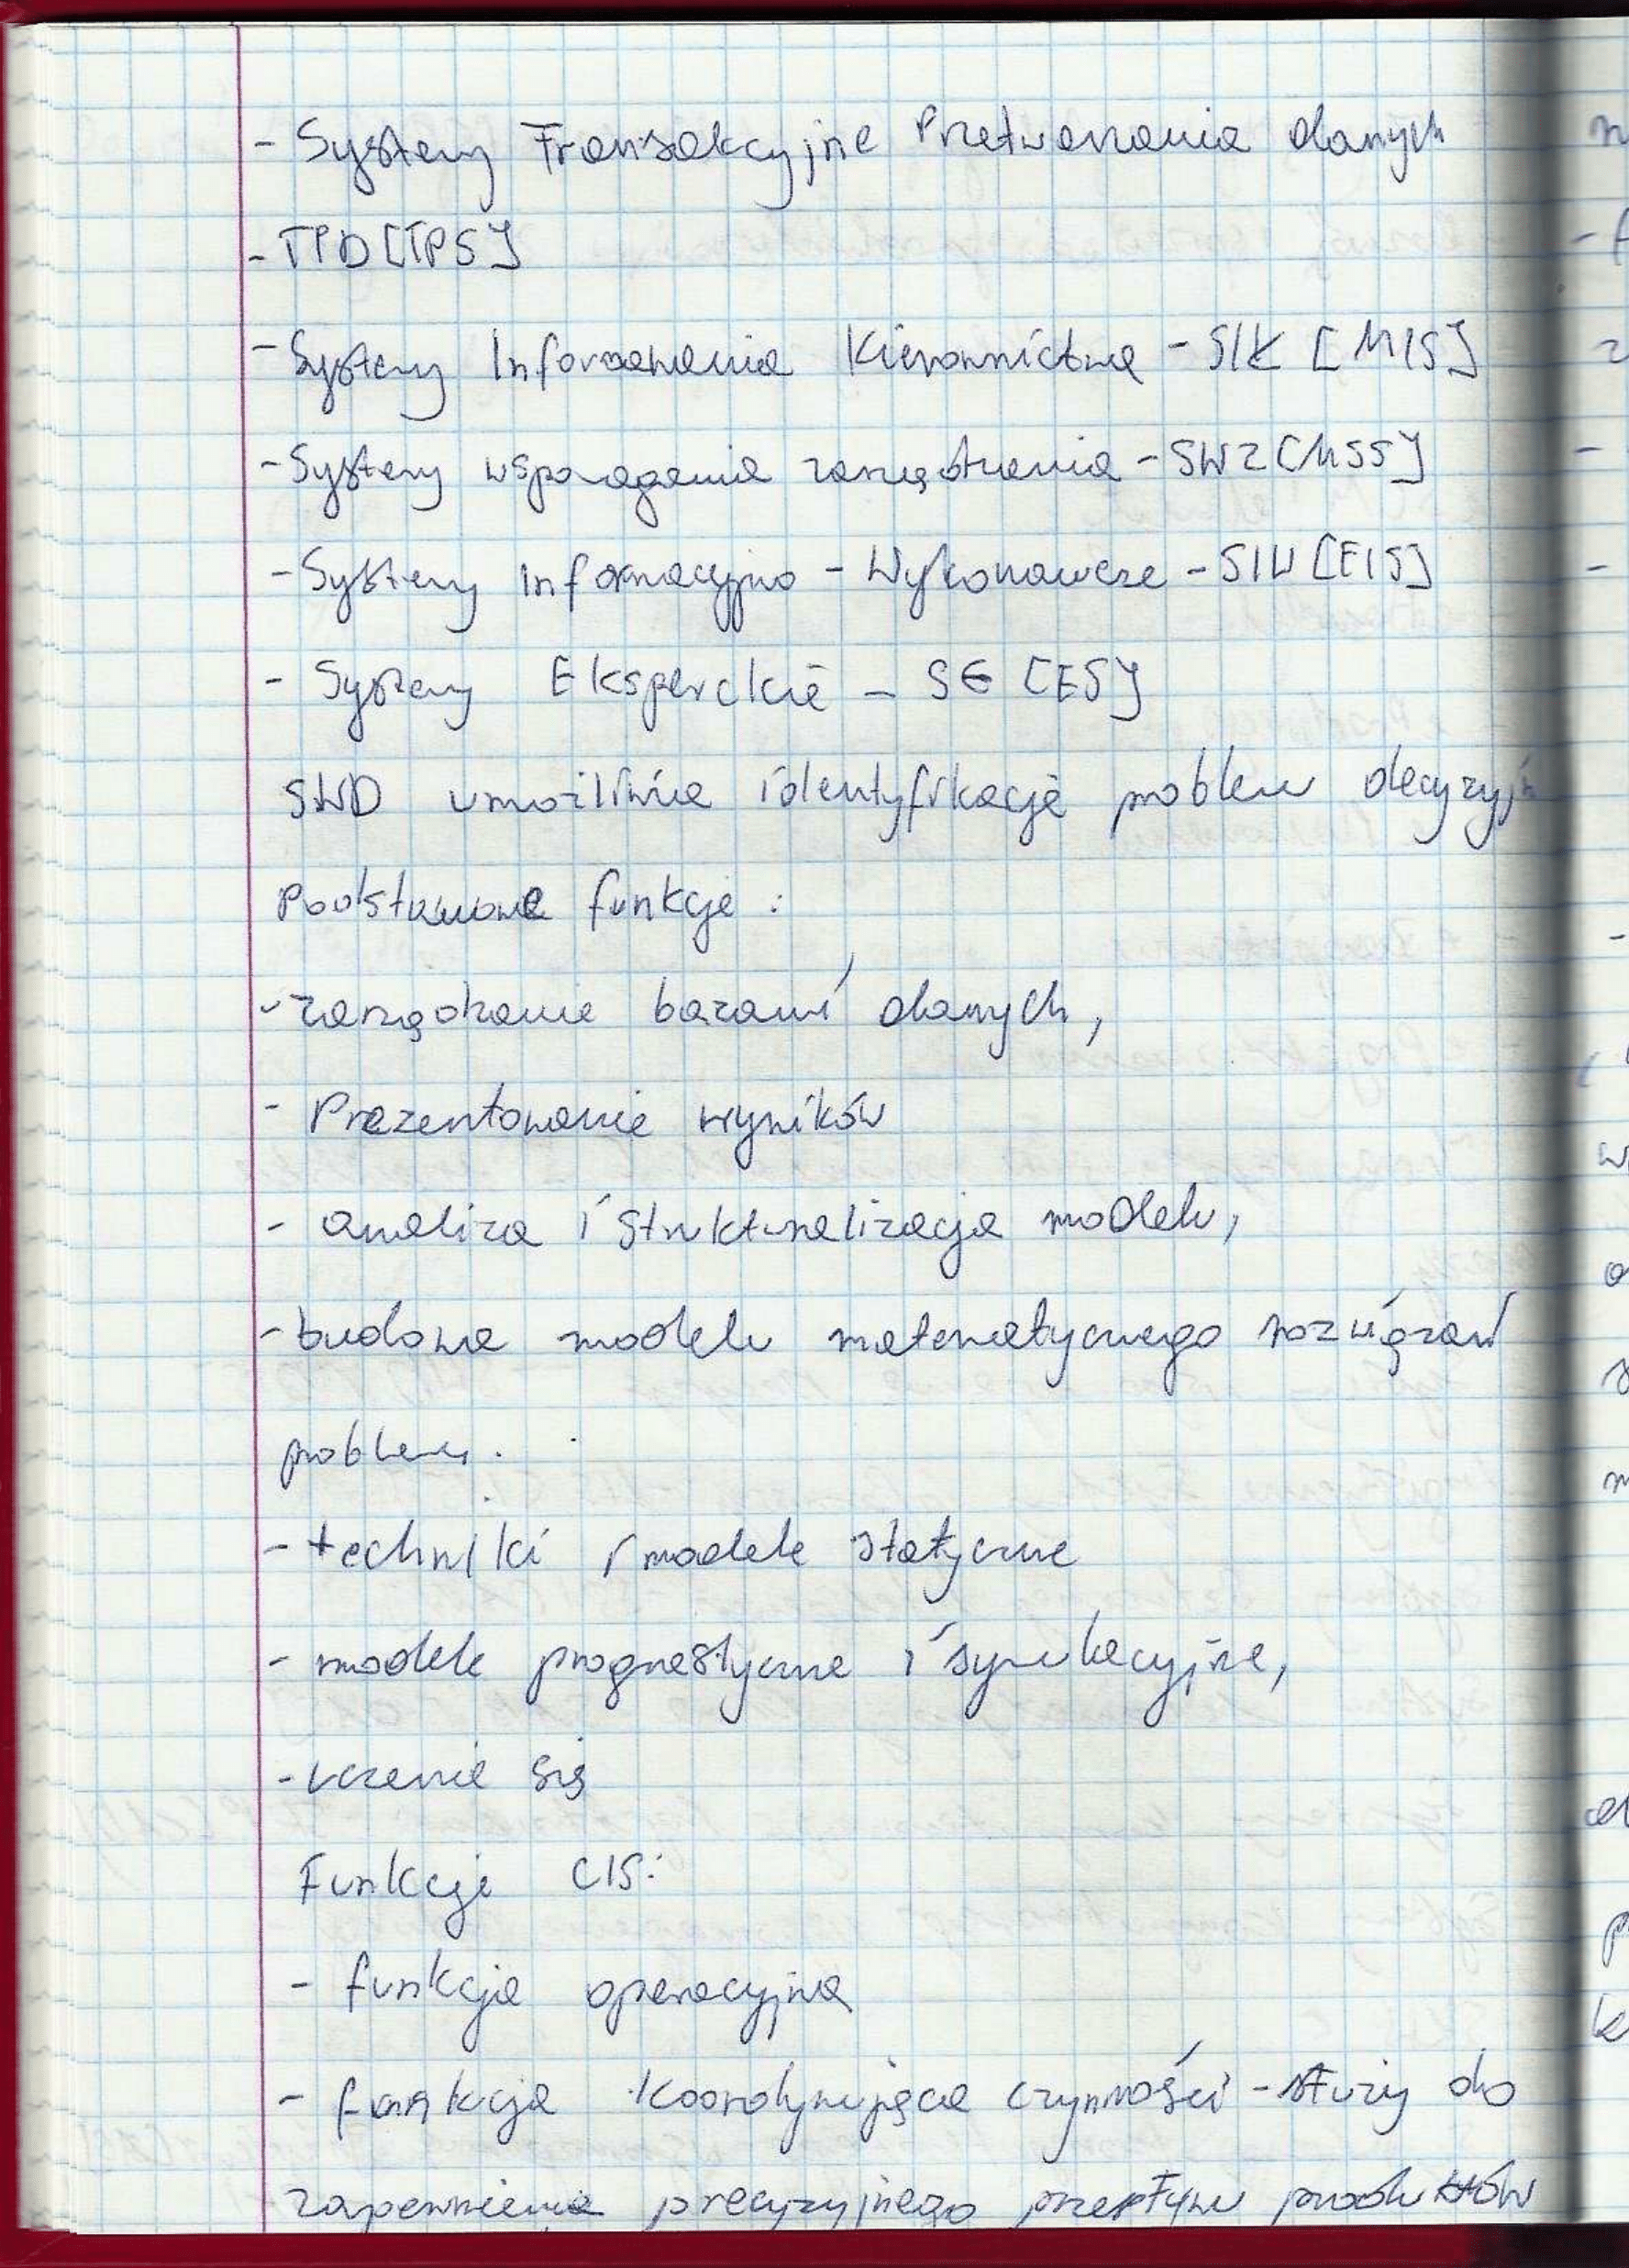 - Systemy Transakcyjne Przetwarzania danych
- TPD [TPS]
- Systemy Informowania Kierownictwa - SIK [MIS]
- Systemy wspomagania zarządzania - SWZ [MSS]
- Systemy Informacyjno - Wykonawcze - SIW [EIS]
- Systemy Eksperckie - SE [ES]
SWD umożliwia identyfikację problem decyzyjn
Podstawowe funkcje :
- zarządzanie bazami danych,
- Prezentowanie wyników
- analiza i strukturalizacja modelu,
- budowa modelu matematycznego rozwiązań
problemu.
- techniki i modele statyczne
- modele prognostyczne i symulacyjne,
- uczenie się
Funkcje CIS:
- funkcja operacyjna
- funkcja koordynująca czynności - służy do
zapewnienia precyzyjnego przepływu produktów